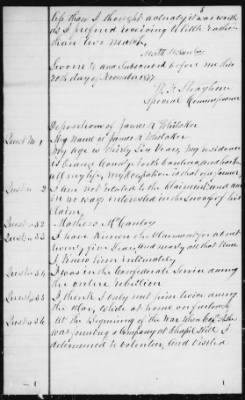 less than I thought actually it was worth
as I prefered receiving a little rather
than two much,
Sworn to and Subscribed before me this
20th day of November 1877
Special Commissioner
Deposition of James N Whitaker
Quest No 1 My Name is James N Whitaker
My Age is thirty Six Years, My residence
is Orange County North Carolina and has been
all my life, My Occupation is that of a farmer,
Quest n 2 I am not related to the Claimant and am
in no way interested in the Success of his
Claim,
Quest n 52
Quest n 53 I have Known the Claimant for about
twenty five Years, and nearly all that time
I Knew him intimately
Quest n 54 I was in the Confederate Service during
the entire rebellion
Quest n 55 I think I only met him twice during
the War, While at home on furlough,
Quest n 56 At the beginning of the War when Capt
was forming a Company at Chapel Hill I
determined to volunteer and visited